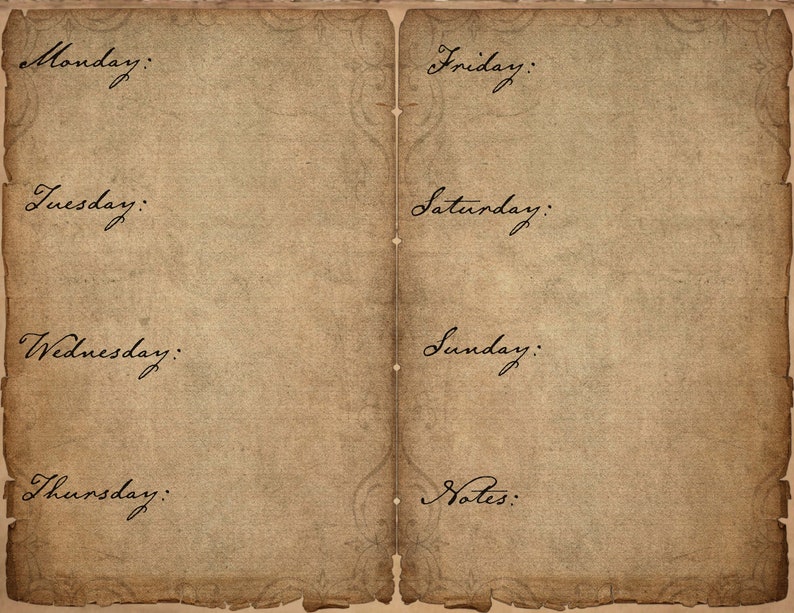 Monday:
Tuesday:
Wednesday:
Thursday:
Friday:
Saturday:
Sunday:
Notes: